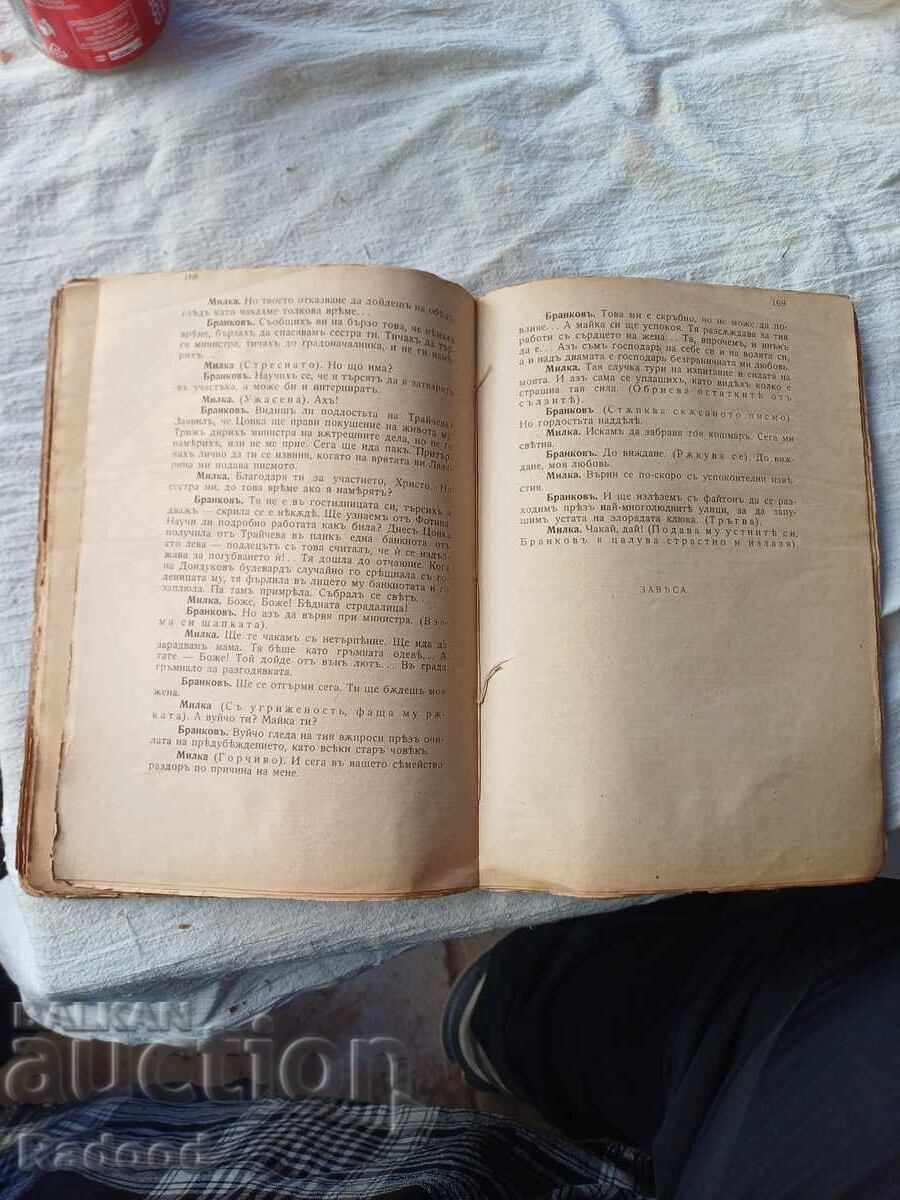 168
Милка. Но твоето отказване да дойдешъ на обѣдъ,
слѣдъ като чакахме толкова врѣме...
Бранковъ. Съобщихъ ви на бързо това, че нѣмахъ
врѣме, бързахъ да спасявамъ сестра ти. Тичахъ да търся
министра, тичахъ до градоначалника, и не ги намѣ-
рихъ...
Милка (Стреснато). Но що има?
Бранковъ. Научихъ се, че я търсятъ да я затварятъ
въ участъка, а може би и интерниратъ.
Милка. (Ужасена). Ахъ!
Бранковъ. Видишъ ли подлостьта на Трайчева?
Заявилъ, че Цонка ще прави покушение на живота му.
Трижъ дирихъ министра на вѫтрешните дела, но не го
намѣрихъ, или не ме прие. Сега ще ида пакъ. Притър-
чахъ лично да ти се извиня, когато на вратата ви
рина ми подава писмото.
Милка. Благодаря ти за участието, Христо. Но
сестра ми, до това врѣме ако я намѣрятъ?
Бранковъ. Тя не е въ гостилницата си, търсихъ я
дважъ — скрила се е нѣкждѣ. Ще узнаемъ отъ Фотина.
Научи ли подробно работата какъ била? Днесъ Цонка
получила отъ Трайчева въ пликъ една банкнота отъ
сто лева — подлецътъ съ това считалъ, че ѝ се надъл-
жава за погубването ѝ!.. Тя дошла до отчаяние. Кога
на Дондуковъ булевардъ случайно го срѣщнала съ го-
деницата му, тя фърлила въ лицето му банкнотата и го
заплюла. Па тамъ примрѣла. Събралъ се свѣтъ.
Милка. Боже, Боже! Бѣдната страдалица!
Бранковъ. Но азъ да вървя при министра. (Взи-
ма си шапката).
Милка. Ще те чакамъ съ нетърпѣние. Ще ида да
зарадвамъ мама. Тя бѣше като гръмната одевѣ... А
тате — Боже! Той дойде отъ вънъ лютъ... Въ града
гръмнало за разгодявката.
Бранковъ. Ще се отгърми сега. Ти ще бѫдешъ моя
жена.
Милка (Съ угриженость, фаща му рѫ-
ката). А вуйчо ти? Майка ти?
Бранковъ. Вуйчо гледа на тия вѫпроси прѣзъ очи-
лата на прѣдубѣждението, като всѣки старъ човѣкъ.
Милка (Горчиво). И сега въ вашето сѣмейство
раздоръ по причина на мене.
169
Бранковъ. Това ми е скръбно, но не може да по-
влияе... А майка си ще успокоя. Тя разсѫждава за тия
работи съ сърдцето на жена... Та, впрочемъ, и инъкъ
да е... Азъ съмъ господарь на себе си и на волята си,
а и надъ двамата е господарь безграничната ми любовь.
Милка. Тая случка тури на изпитание и силата на
моята. И азъ сама се уплашихъ, като видѣхъ колко е
страшна тая сила. (Обрисва остатките отъ
сълзите).
Бранковъ (Стѫпква скѫсаното писмо).
Но гордостьта наддѣлѣ.
Милка. Искамъ да забравя тоя кошмаръ. Сега ми
свѣтна.
Бранковъ. До виждане. (Рѫкува се). До виж-
дане, моя любовь.
Милка. Върни се по-скоро съ успокоителни извѣ-
стия.
Бранковъ. И ще излѣземъ съ файтонъ да се раз-
ходимъ прѣзъ най-многолюдните улици, за да запу-
шимъ устата на злорадата клюка. (Тръгва).
Милка. Чакай, дай! (Подава му устните си,
Бранковъ я цалува страстно и излазя).
ЗАВѢСА
BALKAN
auction
Radood